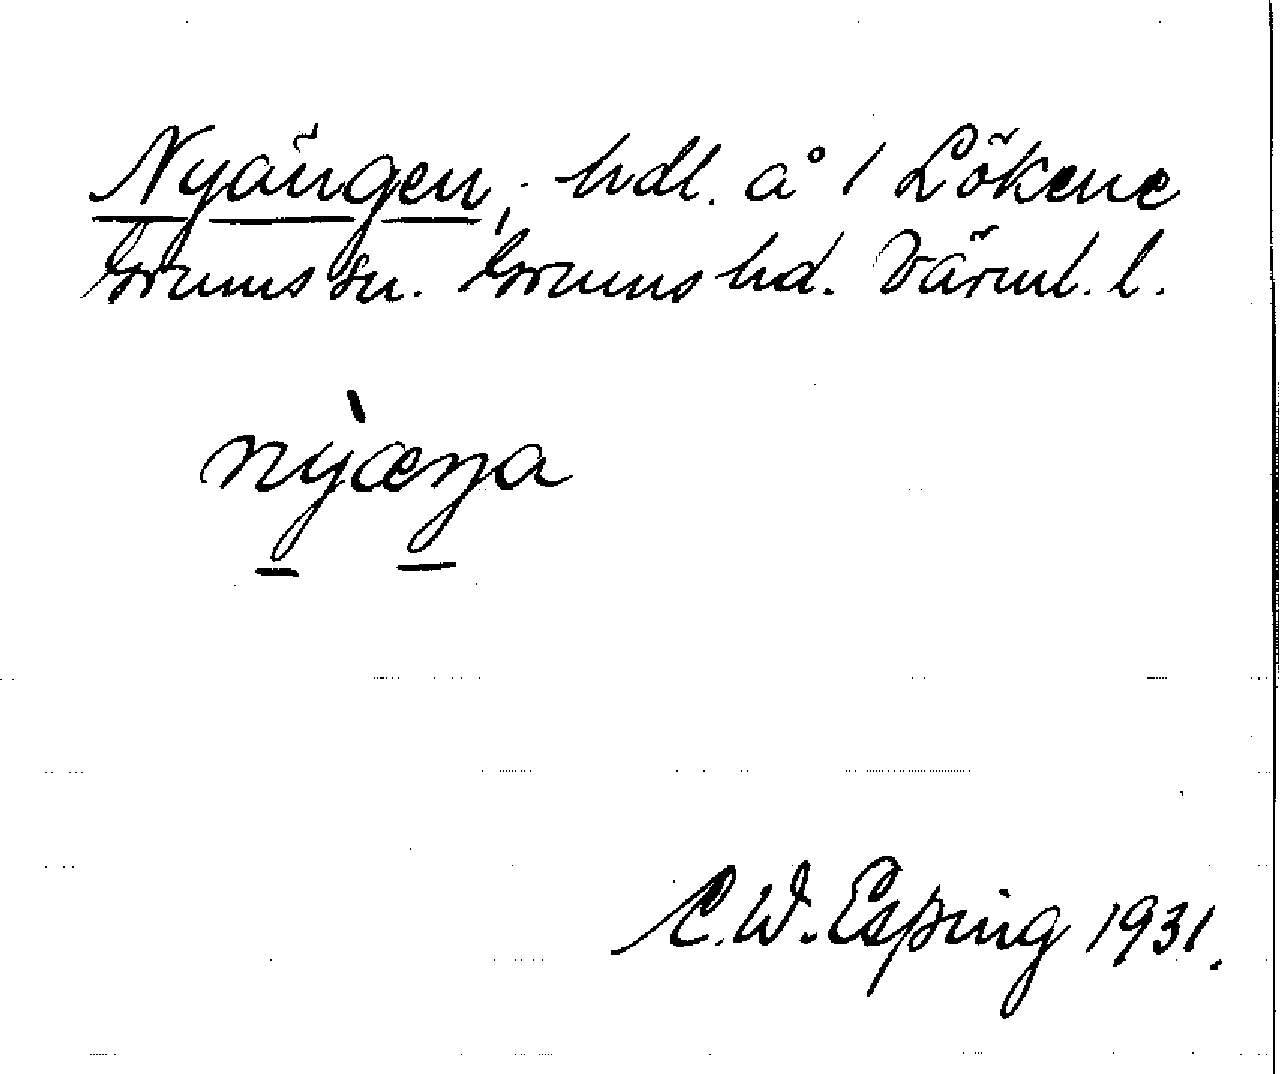 Nyängen, hdl. å 1 Lökene
Grums sn. Grums hd. Värml. l.
nỳæŋa
C.W. Esping 1931.